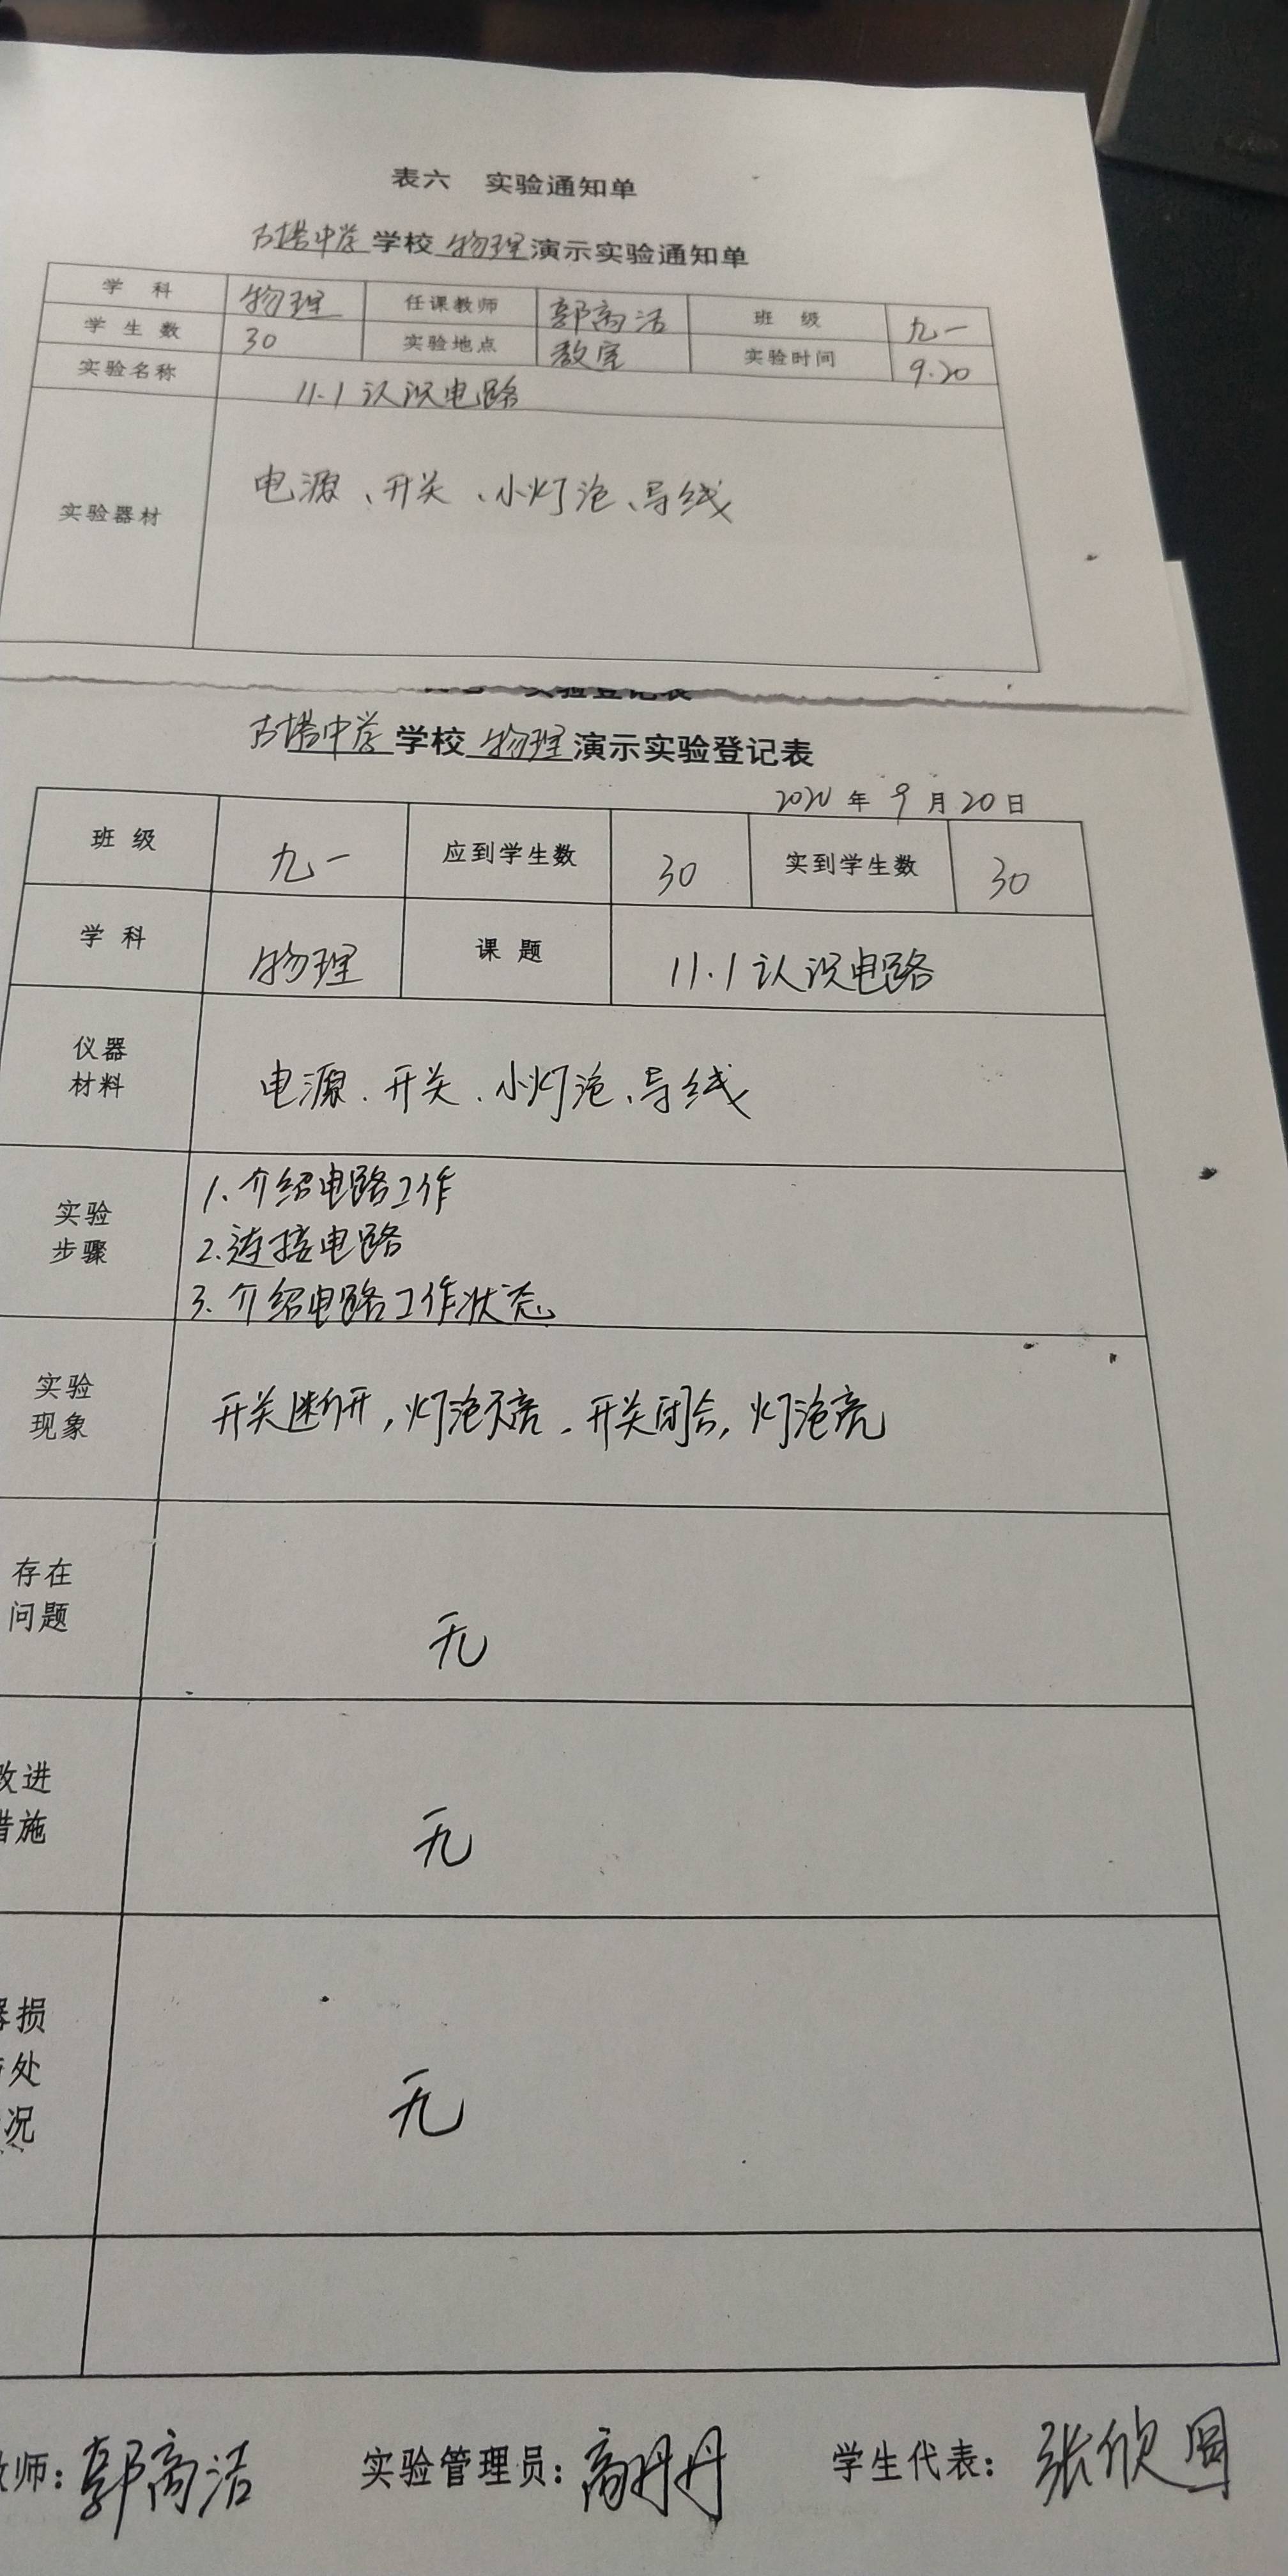 表六 实验通知单
古塔中学学校物理演示实验通知单
学 科 物理 任课教师 郭商洁 班 级 九一
学 生 数 30 实验地点 教室 实验时间 9.20
实验名称 11.1 认识电路
实验器材 电源、开关、小灯泡、导线
实验登记表
古塔中学学校物理演示实验登记表
年 9 月 20 日
班 级 九一 应到学生数 30 实到学生数 30
学 科 物理 课 题 11.1 认识电路
仪器
材料 电源、开关、小灯泡、导线
1. 介绍电路工作
实验
步骤 2. 连接电路
3. 介绍电路工作状态
实验
现象 开关断开,灯泡不亮、开关闭合,灯泡亮
存在
问题 无
改进
措施 无
损
处
况 无
师:郭商洁 实验管理员:高丹丹 学生代表:张欣